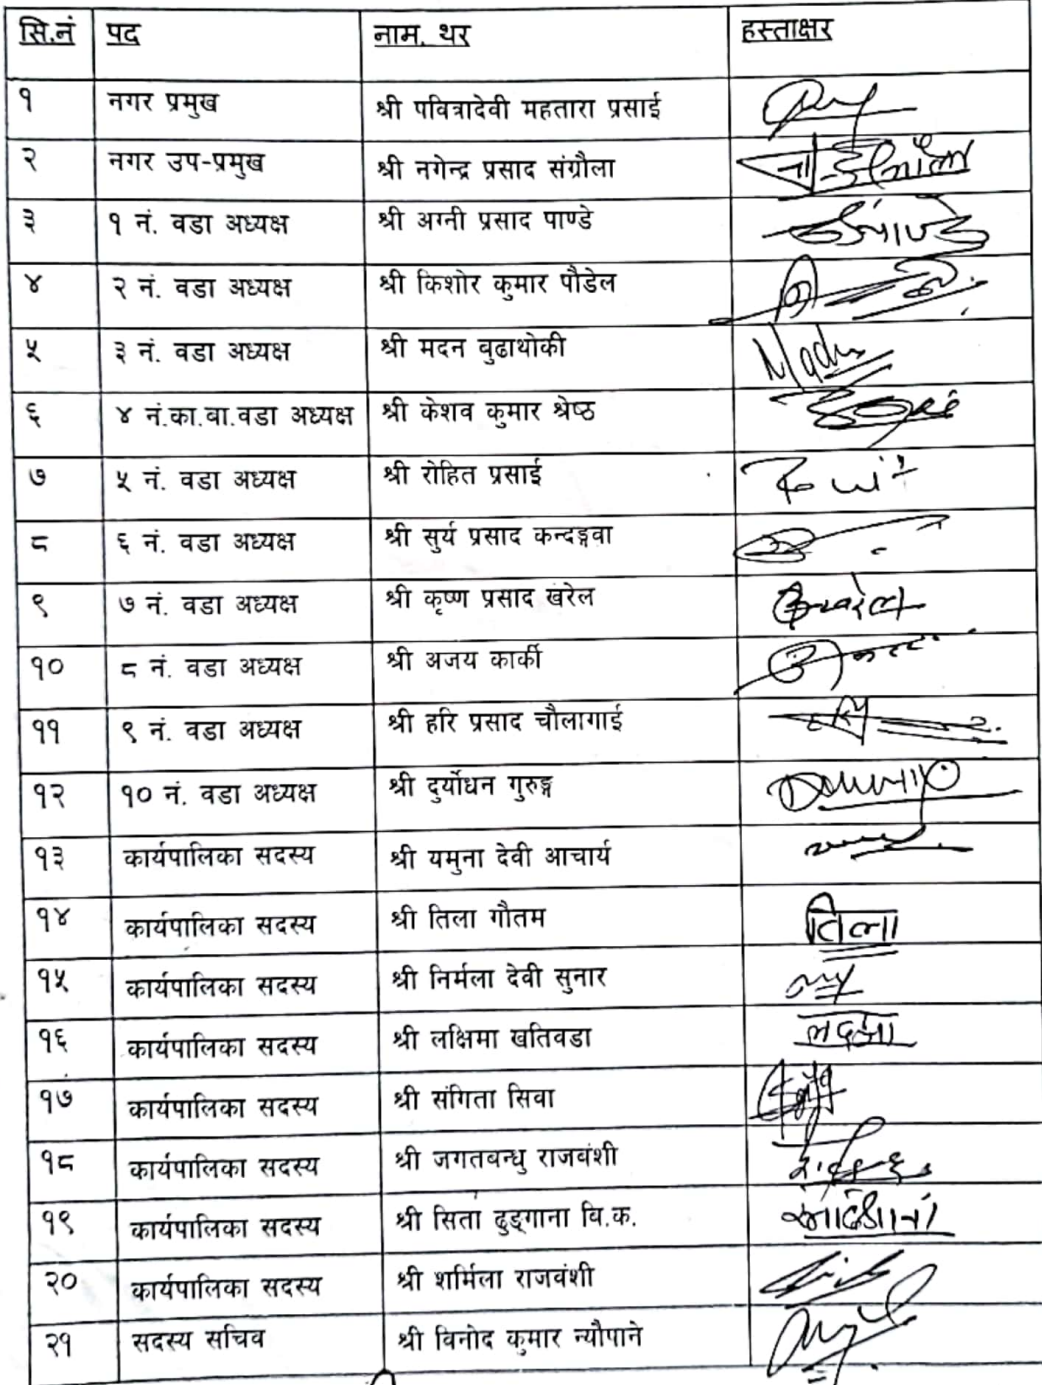 सि.नं पद नाम, थर हस्ताक्षर
१ नगर प्रमुख श्री पवित्रादेवी महतारा प्रसाई
२ नगर उप-प्रमुख श्री नगेन्द्र प्रसाद संग्रौला
३ १ नं. वडा अध्यक्ष श्री अग्नी प्रसाद पाण्डे
४ २ नं. वडा अध्यक्ष श्री किशोर कुमार पौडेल
५ ३ नं. वडा अध्यक्ष श्री मदन बुढाथोकी
६ ४ नं.का.बा.वडा अध्यक्ष श्री केशव कुमार श्रेष्ठ
७ ५ नं. वडा अध्यक्ष श्री रोहित प्रसाई
८ ६ नं. वडा अध्यक्ष श्री सुर्य प्रसाद कन्दङ्गवा
९ ७ नं. वडा अध्यक्ष श्री कृष्ण प्रसाद खरेल
१० ८ नं. वडा अध्यक्ष श्री अजय कार्की
११ ९ नं. वडा अध्यक्ष श्री हरि प्रसाद चौलागाई
१२ १० नं. वडा अध्यक्ष श्री दुर्योधन गुरुङ्ग
१३ कार्यपालिका सदस्य श्री यमुना देवी आचार्य
१४ कार्यपालिका सदस्य श्री तिला गौतम तिला
१५ कार्यपालिका सदस्य श्री निर्मला देवी सुनार
१६ कार्यपालिका सदस्य श्री लक्षिमा खतिवडा
१७ कार्यपालिका सदस्य श्री संगिता सिवा
१८ कार्यपालिका सदस्य श्री जगतबन्धु राजवंशी
१९ कार्यपालिका सदस्य श्री सिता ढुङ्गाना वि.क.
२० कार्यपालिका सदस्य श्री शर्मिला राजवंशी
२१ सदस्य सचिव श्री विनोद कुमार न्यौपाने